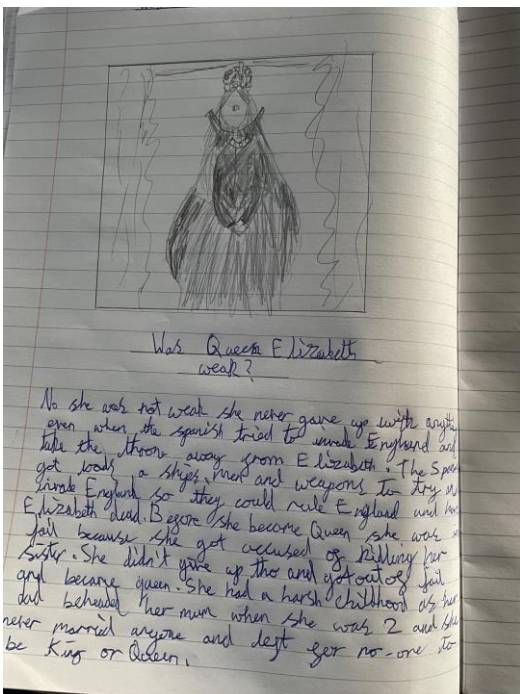 Was Queen Elizabeth
weak?
No she was not weak she never gave up with
even when the spanish tried to invade England and
take the throne away from Elizabeth. The
got loads a ships, men and weapons to try
invade England so they could rule England and
Elizabeth dead. Before she became Queen she was
jail because she got accused of killing her
sister. She didn't give up tho and got out of jail
and became queen. She had a harsh childhood as her
dad beheaded her mum when she was 2 and she
never married anyone and no-one to
be King or Queen.